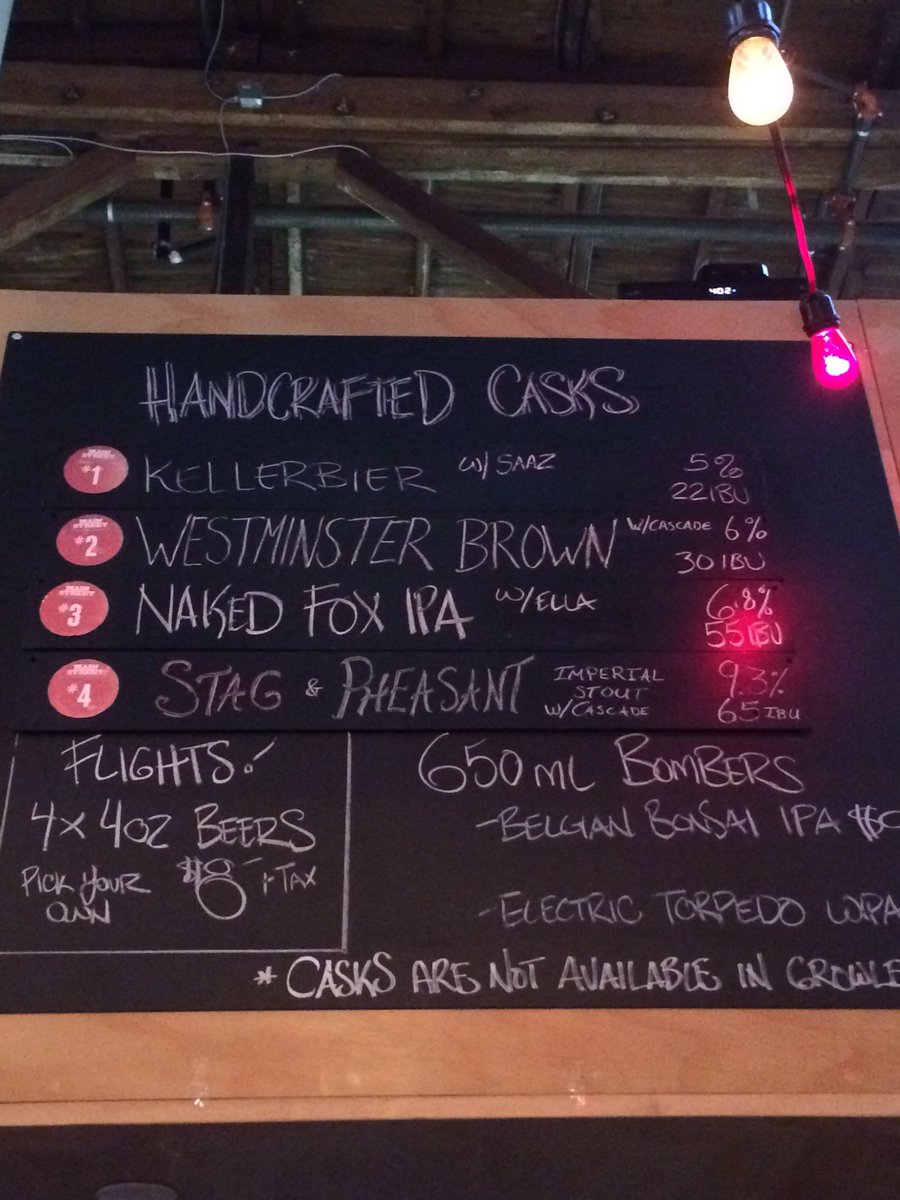 HANDCRAFTED CASKS
MAIN STREET #1 KELLERBIER W/ SAAZ 5%
22 IBU
MAIN STREET #2 WESTMINSTER BROWN W/CASCADE 6%
30 IBU
MAIN STREET #3 NAKED FOX IPA W/ELLA 6.8%
55 IBU
MAIN STREET #4 STAG & PHEASANT IMPERIAL STOUT W/CASCADE 9.3%
65 IBU
FLIGHTS!
4X4OZ BEERS
PICK YOUR OWN $8 +TAX
650ML BOMBERS
-BELGIAN BONSAI IPA
-ELECTRIC TORPEDO
* CASKS ARE NOT AVAILABLE IN GROWLE